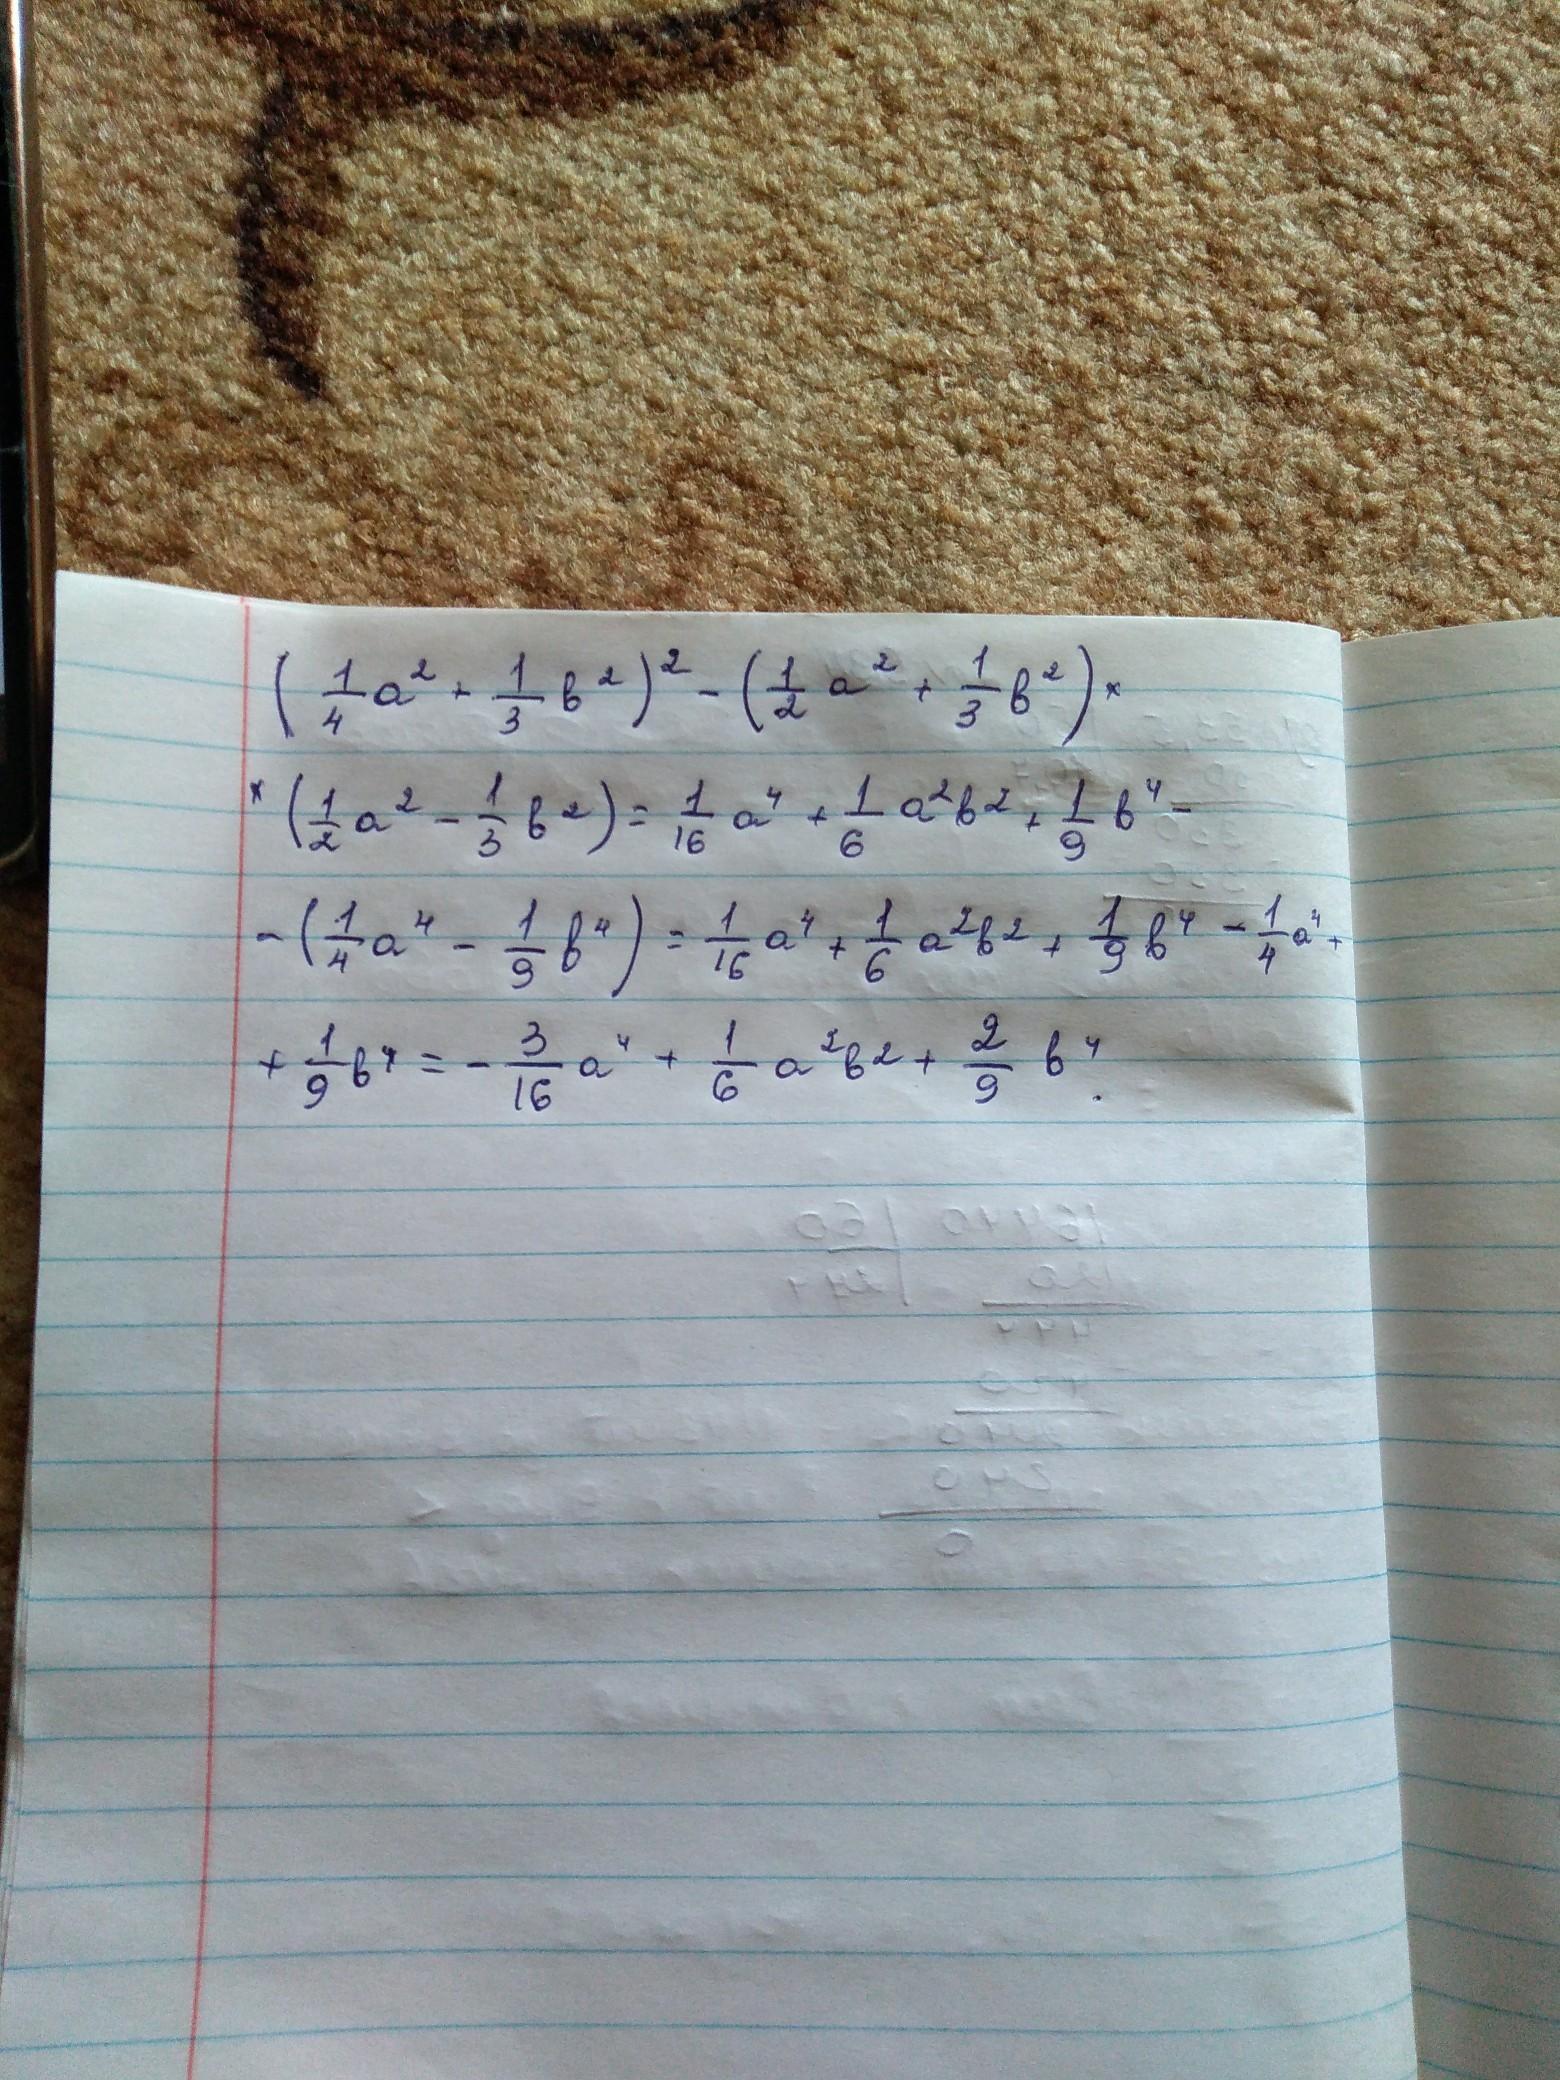 (1/4 a² + 1/3 b²)² - (1/2 a² + 1/3 b²) ×
× (1/2 a² - 1/3 b²) = 1/16 a⁴ + 1/6 a²b² + 1/9 b⁴ -
- (1/4 a⁴ - 1/9 b⁴) = 1/16 a⁴ + 1/6 a²b² + 1/9 b⁴ - 1/4 a⁴ +
+ 1/9 b⁴ = - 3/16 a⁴ + 1/6 a²b² + 2/9 b⁴.